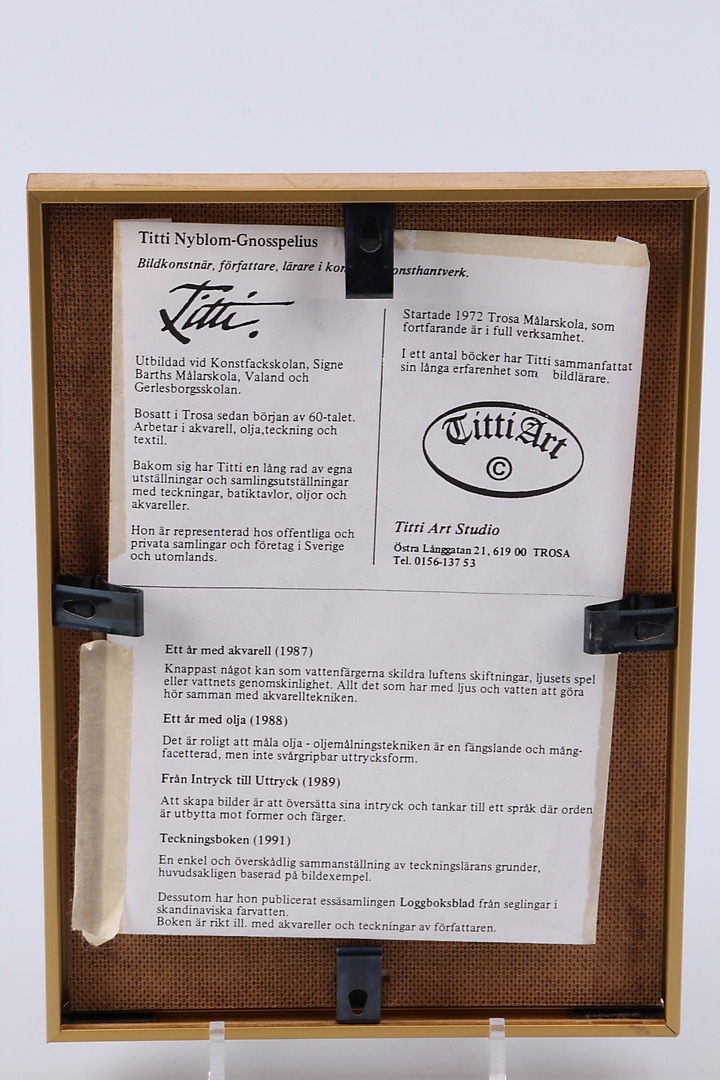 Titti Nyblom-Gnosspelius
Bildkonstnär, författare, lärare i kon onsthantverk.
Titti.
Utbildad vid Konstfackskolan, Signe
Barths Målarskola, Valand och
Gerlesborgsskolan.
Bosatt i Trosa sedan början av 60-talet.
Arbetar i akvarell, olja,teckning och
textil.
Bakom sig har Titti en lång rad av egna
utställningar och samlingsutställningar
med teckningar, batiktavlor, oljor och
akvareller.
Hon är representerad hos offentliga och
privata samlingar och företag i Sverige
och utomlands.
Startade 1972 Trosa Målarskola, som
fortfarande är i full verksamhet.
I ett antal böcker har Titti sammanfattat
sin långa erfarenhet som bildlärare.
Titti Art
©
Titti Art Studio
Östra Långgatan 21, 619 00 TROSA
Tel. 0156-137 53
Ett år med akvarell (1987)
Knappast något kan som vattenfärgerna skildra luftens skiftningar, ljusets spel
eller vattnets genomskinlighet. Allt det som har med ljus och vatten att göra
hör samman med akvarelltekniken.
Ett år med olja (1988)
Det är roligt att måla olja - oljemålningstekniken är en fängslande och mång-
facetterad, men inte svårgripbar uttrycksform.
Från Intryck till Uttryck (1989)
Att skapa bilder är att översätta sina intryck och tankar till ett språk där orden
är utbytta mot former och färger.
Teckningsboken (1991)
En enkel och överskådlig sammanställning av teckningslärans grunder,
huvudsakligen baserad på bildexempel.
Dessutom har hon publicerat essäsamlingen Loggboksblad från seglingar i
skandinaviska farvatten.
Boken är rikt ill. med akvareller och teckningar av författaren.